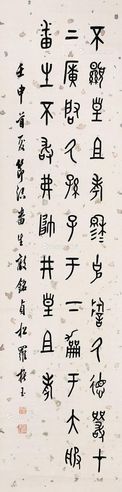 不顯皇且考穆克誓氒德嚴才
上廣啟氒孫子于下于大服
番生不敢弗帥井皇且考
壬申首夏節臨番生敦銘貞松羅振玉